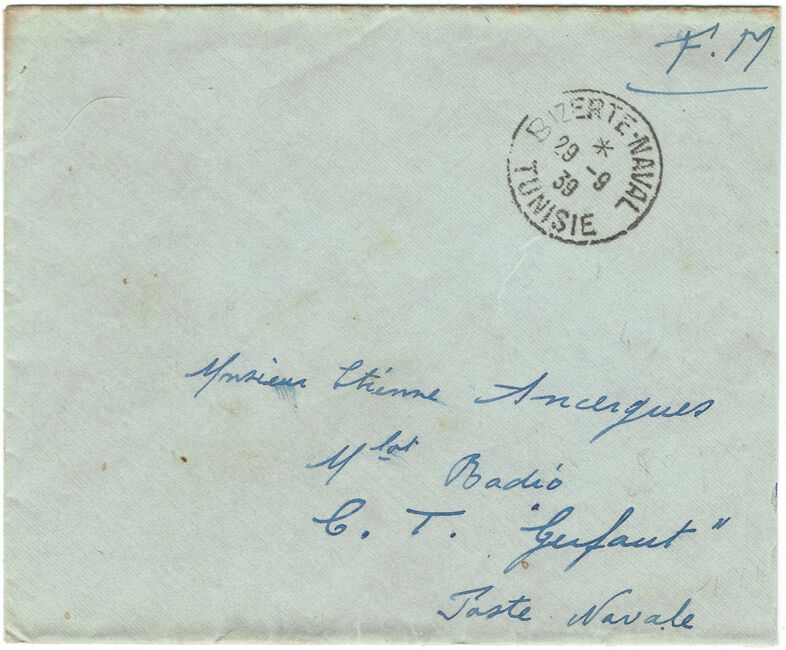 F.M
BIZERTE-NAVAL
8 29 *
-9
39
TUNISIE
Monsieur Etienne Ancergues
Mlot Radio
C. T. "Gerfaut"
Poste Navale